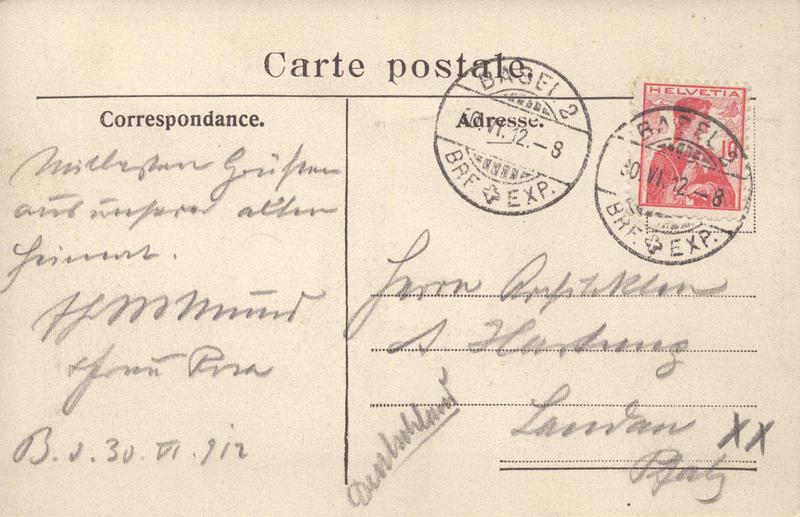 Carte postale
Correspondance.
Adresse.
BASEL 2
30.VI.12.-8
BRF. EXP.
HELVETIA
10
BASEL 2
30.VI.12.-8
BRF. EXP.
Mit besten Grüßen
aus unserer alten
Heimat.
Mund
Frau Rosa
B. d. 30. VI. 912
Herrn
Hartung
Landau
Pfalz
Deutschland
XX